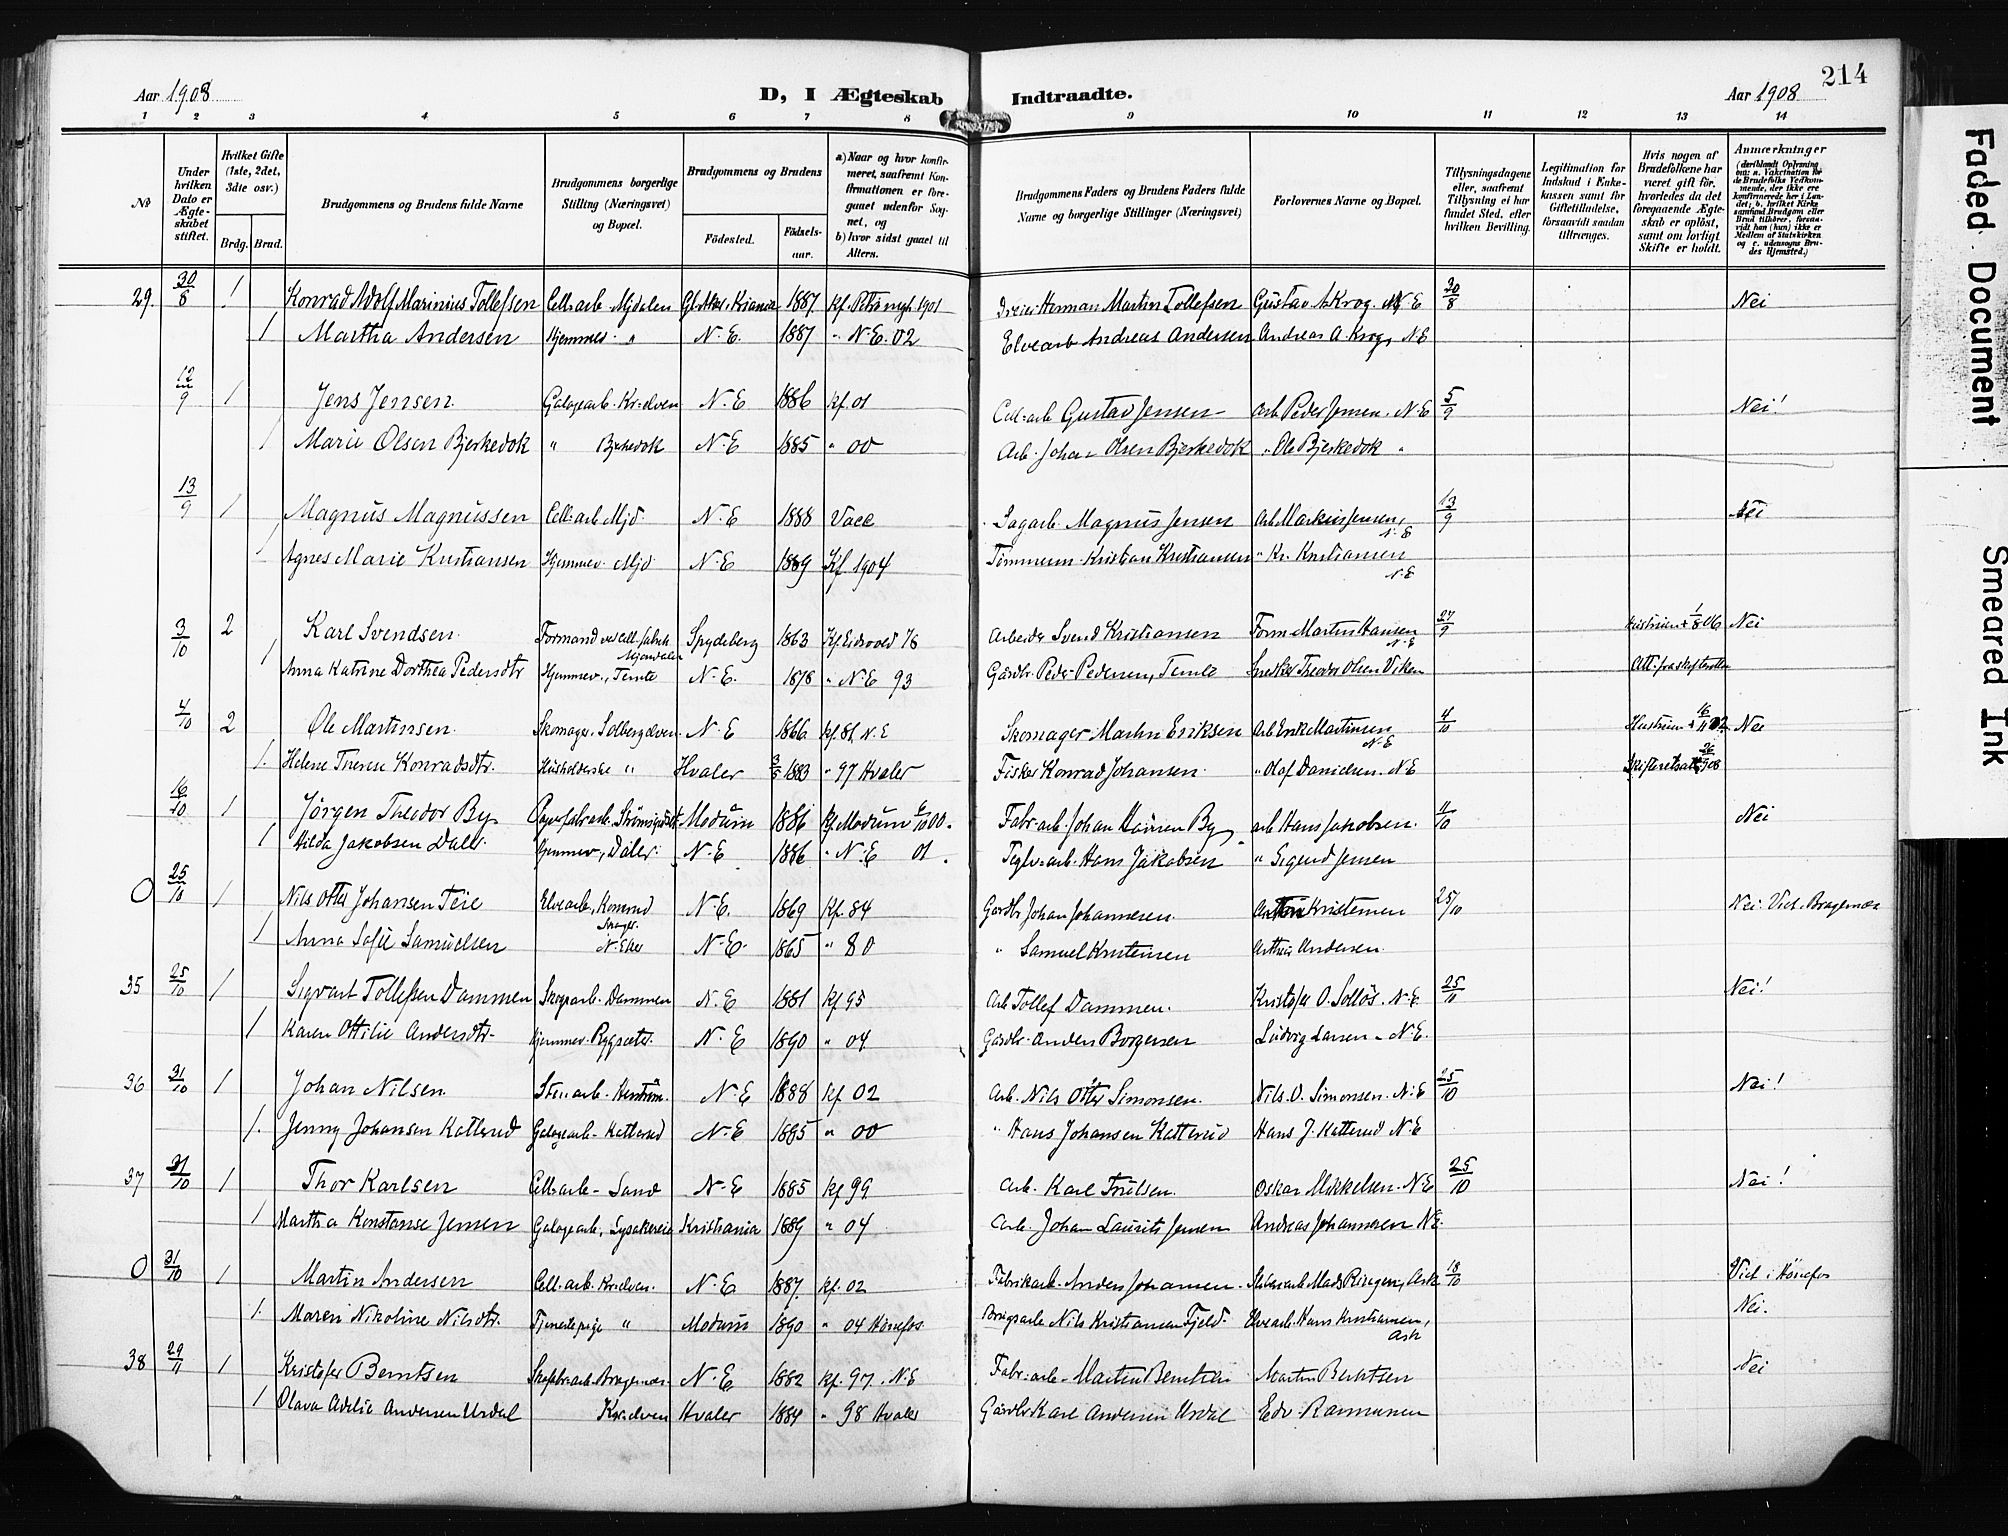 Aar 1908
D, I Ægteskab Indtraadte.
Aar 1908
214
1 2 3 4 5 6 7 8 9 10 11 12 13 14
No
Under hvilken Dato er Ægteskabet stiftet.
Hvilket Gifte (1ste, 2det, 3die osv.)
Brdg. Brud.
Brudgommens og Brudens fulde Navne
Brudgommens borgerlige Stilling (Næringsvei) og Bopæl.
Brudgommens og Brudens
Fødested.
Fødselsaar.
a) Naar og hvor konfirmeret, saafremt Konfirmationen er foregaaet udenfor Sognet, og b) hvor sidst gaaet til Alters.
Brudgommens Faders og Brudens Faders fulde Navne og borgerlige Stillinger (Næringsvei)
Forlovernes Navne og Bopæl.
Tillysningsdagene eller, saafremt Tillysning ei har fundet Sted, efter hvilken Bevilling.
Legitimation for Indskud i Enkekassen samt for Giftetilladelse, forsaavidt saadan tiltrænges.
Hvis nogen af Brudefolkene har været gift før, hvorledes da det foregaaende Ægteskab er opløst, samt om lovligt Skifte er holdt.
Anmærkninger (deriblandt Oplysning om: a. Vakcination for de Brudefolks Vedkommende, der ikke ere konfirmerede her i Landet; b. hvilket Kirkesamfund Brudgom eller Brud tilhører, forsaavidt han (hun) ikke er Medlem af Statskirken og c. udensogns Brudes Hjemsted.)
29 30/8 1 Konrad Adolf Marinius Tollefsen Cell.arb Mjdalen Gl. Aker. Kriania 1887 Kf. 1901 Herman Martin Tollefsen Gustav A. Krog. N E 20/8 Nei
1 Martha Andersen Hjemmev. " N. E. 1887 " N. E. 02 Elvearb Andreas Andersen Andreas A. Krog, N E
12/9 1 Jens Jensen Galagearb. Kr.elven N. E 1886 kf. 01 Cell.arb Gustav Jensen Arb Peder Jensen. N. E 5/9 Nei!
1 Marie Olsen Bjerkedok " Bjerkedok N. E 1885 " 00 Arb. Johan Olsen Bjerkedok " Ole Bjerkedok "
13/9 1 Magnus Magnussen Cell.arb Mjd N. E 1888 Vacc Sagarb. Magnus Jensen Arb Markus Jensen, N. E 13/9 Nei
1 Agnes Marie Kristiansen Hjemmev. Mjd N. E 1889 Kf 1904 Tømmerm. Kristian Kristiansen " Kr. Kristiansen N. E
3/10 2 Karl Svendsen Formand ved cell. fabrik Mjøndalen Spydeberg 1863 Kf. Eidsvold 78 Arbeider Svend Kristiansen Form. Martin Hansen N. E 27/9 Hustruen + 1/8 06 Nei
1 Anna Katrine Dorthea Pedersdtr Hjemmev., Temte N. E. 1878 " N. E 93 Gårdbr. Peder Pedersen, Temte Snekker Theodor Olsen Viken Att. fra skifteretten
4/10 2 Ole Martinsen Skomager. Solbergelven N. E 1866 kf. 81 N. E Skomager Martin Eriksen Arb Erik Martinsen N. E 4/10 Hustruen + 16/11 02 Nei
1. Helene Therese Konradsdtr. Husholderske " Hvaler 3/5 1883 " 97 Hvaler Fisker Konrad Johansen " Olaf Danielsen. N. E Skifteretsatt 08
16/10 1 Jørgen Theodor By Papirfabr.arb. Strømsgodset Modum 1886 Kf Modum 00. Fabr.arb. Johan Hansen By Arb Hans Jakobsen. 11/10 Nei
1 Hilda Jakobsen Daler Hjemmev., Daler. N. E 1886 " N. E 01. Teglv.arb. Hans Jakobsen " Sigurd Jensen
O 25/10 1 Nils Otter Johansen Teie Elvearb, Komnæs N. E. 1869 Kf. 84 Gårdbr. Johan Johannesen Anton Kristensen 25/10 Nei. Viet. Bragernæs
1 Anna Sofie Samuelsen N. Eker N. E. 1865 " 80 " Samuel Kristensen Arthur Andersen
35 25/10 1 Sigvart Tollefsen Dammen Skogsarb. Dammen N. E 1881 kf 95 Arb. Tollef Dammen. Kristofer O. Solløs. N. E. 25/10 Nei!
1 Karen Ottilie Andersdtr. Hjemmev. Rygsæter. N. E 1890 " 04 Gårdbr. Anders Borgersen Ludvig Larsen N. E.
36 31/10 1 Johan Nilsen Stenarb. N. E 1888 kf 02 Arb. Nils Otter Simonsen. Nils. O. Simonsen. N. E 25/10 Nei!
1. Jenny Johansen Katterud Galagearb. Katterud N. E 1885 " 00 " Hans Johansen Katterud Hans J. Katterud N E
37 31/10 1 Thor Karlsen Cell.arb. Sand N. E 1885 kf 99 Arb. Karl Trulsen. Oskar Mikkelsen. N E 25/10 Nei!
1 Martha Konstanse Jensen Galagearb, Kristiania 1889 " 04 Arb. Johan Laurits Jensen Andreas Johannesen N E.
O 31/10 1 Martin Andersen Cell.arb. Kr.elven. N. E 1887. kf. 02 Fabrikarb. Anders Johansen Mads Ringen, Ask 18/10 Viet i Hønefos
1. Maren Nikoline Nilsdtr. Tjenestepige " Modum 1890 " 04 Hønefos Brugsarb. Nils Kristiansen Fjeld. Elvearb. Hans Kristiansen, Ask Nei.
38 29/11 1 Kristofer Berntsen Skofabr.arb. Bragernæs. N. E 1882 kf. 97. N. E Fabr.arb. Martin Berntsen Martin Berntsen Nei
1 Olava Adelie Andersen Ursdal Kr.elven Hvaler 1884 " 98 Hvaler Gårdbr. Karl Andersen Ursdal Edv. Rasmussen
Faded Document
Smeared Ink